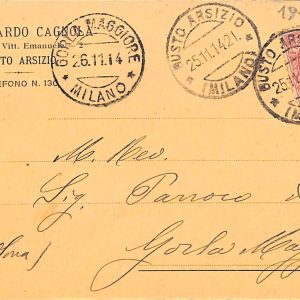 ARDO CAGNOLA
Vitt. Emanuele
TO ARSIZIO
EFONO N. 130
GORLA MAGGIORE
26.11.14
MILANO
BUSTO ARSIZIO
25.11.14 21
(MILANO)
BUSTO ARS
25.11
(MI
19
M. Rev.
Sig. Parroco d
Gorla Mag